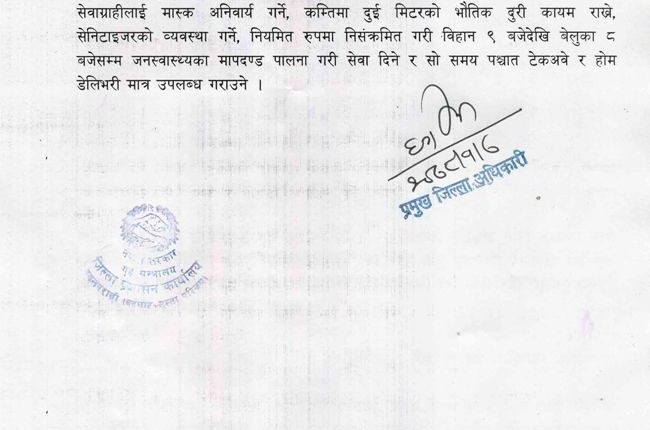 सेवाग्राहीलाई मास्क अनिवार्य गर्ने, कम्तिमा दुई मिटरको भौतिक दुरी कायम राख्ने,
सेनिटाइजरको व्यवस्था गर्ने, नियमित रुपमा निसंक्रमित गरी विहान ९ बजेदेखि बेलुका ८
बजेसम्म जनस्वास्थ्यका मापदण्ड पालना गरी सेवा दिने र सो समय पश्चात टेकअवे र होम
डेलिभरी मात्र उपलब्ध गराउने ।
प्रमुख जिल्ला अधिकारी
सरकार
गृह मन्त्रालय
जिल्ला प्रशासन कार्यालय